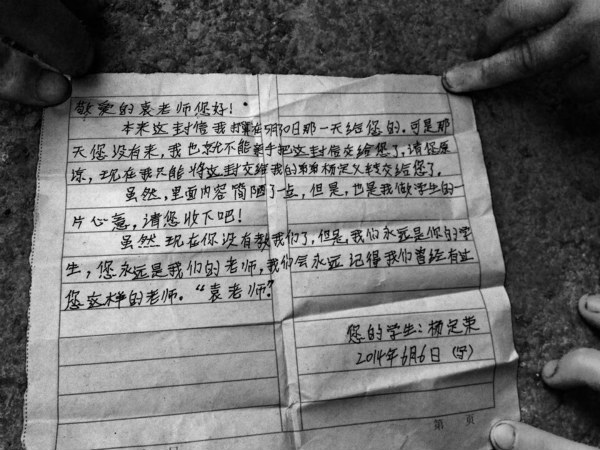 敬爱的袁老师您好!
本来这封信我打算在5月30日那一天给您的。可是那
天您没有来,我也就不能亲手把这封信交给您了,请您原
谅,现在我只能将这封交给我的弟弟杨定义转交给您了。
虽然,里面内容简陋了一点,但是,也是我做学生的一
片心意,请您收下吧!
虽然现在你没有教我们了,但是,我们永远是你的学
生,您永远是我们的老师,我们会永远记得我们曾经有过
您这样的老师。“袁老师”
您的学生:杨定荣
2014年6月6日(字)
第 页